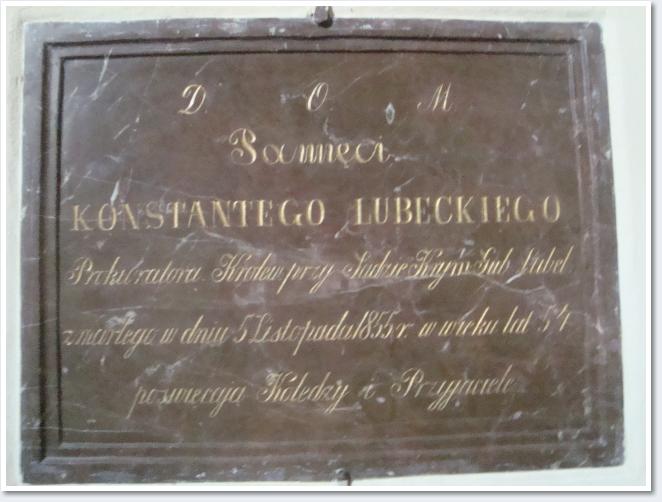 D. O. M.
Pamięci
KONSTANTEGO LUBECKIEGO
Prokuratora Królew. przy Sądzie Krym. Gub. Lubel.
zmarłego w dniu 5 Listopada 1855 r. w wieku lat 54
poswięcają Koledzy i Przyjaciele